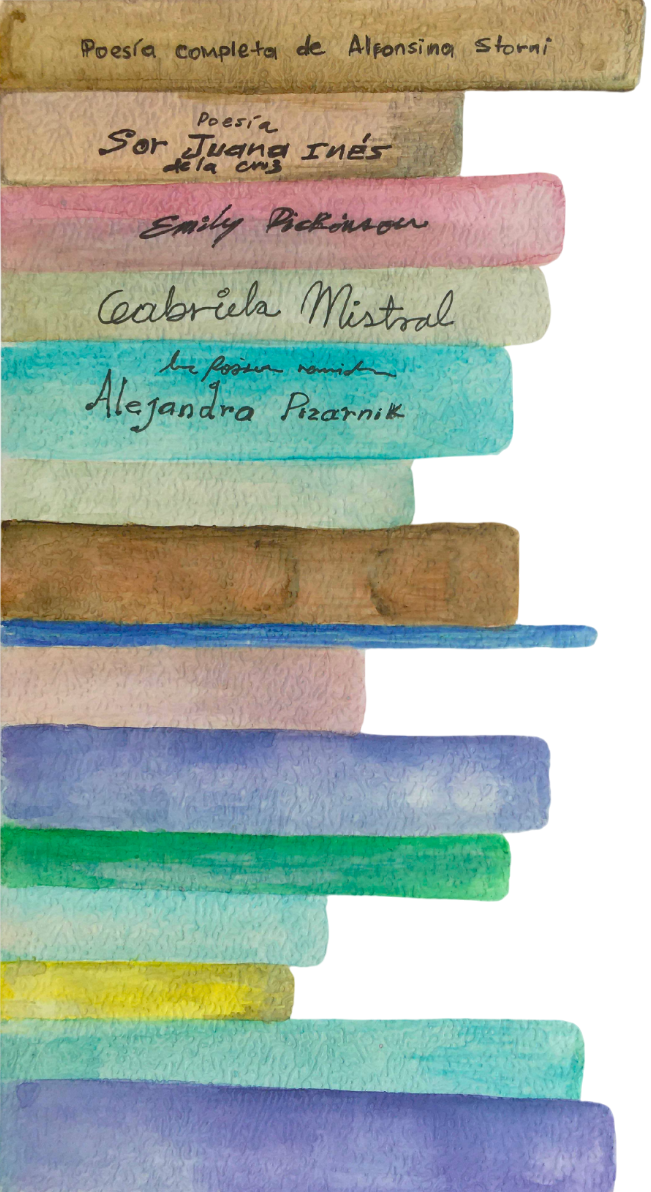 Poesía completa de Alfonsina Storni
Poesía
Sor Juana Inés
de la cruz
Emily Dickinson
Gabriela Mistral
Alejandra Pizarnik